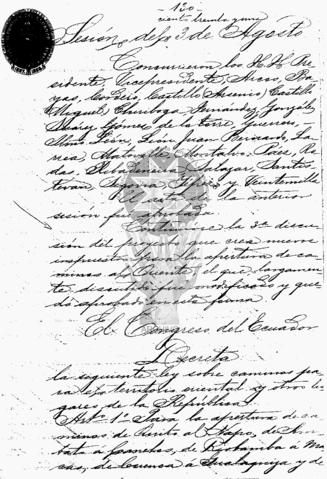 - 130 -
ciento treinta
Sesión del 3 de Agosto
Concurrieron los H. H. Pre-
sidente, Vicepresidente, Arcos, Ba-
yas, Cordero, Castillo Asencio, Castillo
Miguel, Chiriboga, Fernández, González
Suarez, Gomez de la torre, Guerrero,
León, León Juan Bernardo, La-
rrea, Matovelle, Montalvo, Páez, Ro-
das, Ribadeneira, Salazar, Santis-
tevan, Segovia, y Veintemilla
El acta de la anterior
sesión fue aprobada
la 3ª discu-
sión del proyecto que crea nuevos
impuestos para la apertura de ca-
minos al Oriente, el que, largamen-
te discutido fue modificado y que-
dó aprobado en esta forma
El Congreso del Ecuador
Decreta
la siguiente ley sobre caminos pa-
ra el territorio oriental y otros lu-
gares de la República
Art. 1º Para la apertura de ca-
minos de Quito al Napo, de Am-
bato a Canelos, de Riobamba á Ma-
cas, de Cuenca á Gualaquiza y de